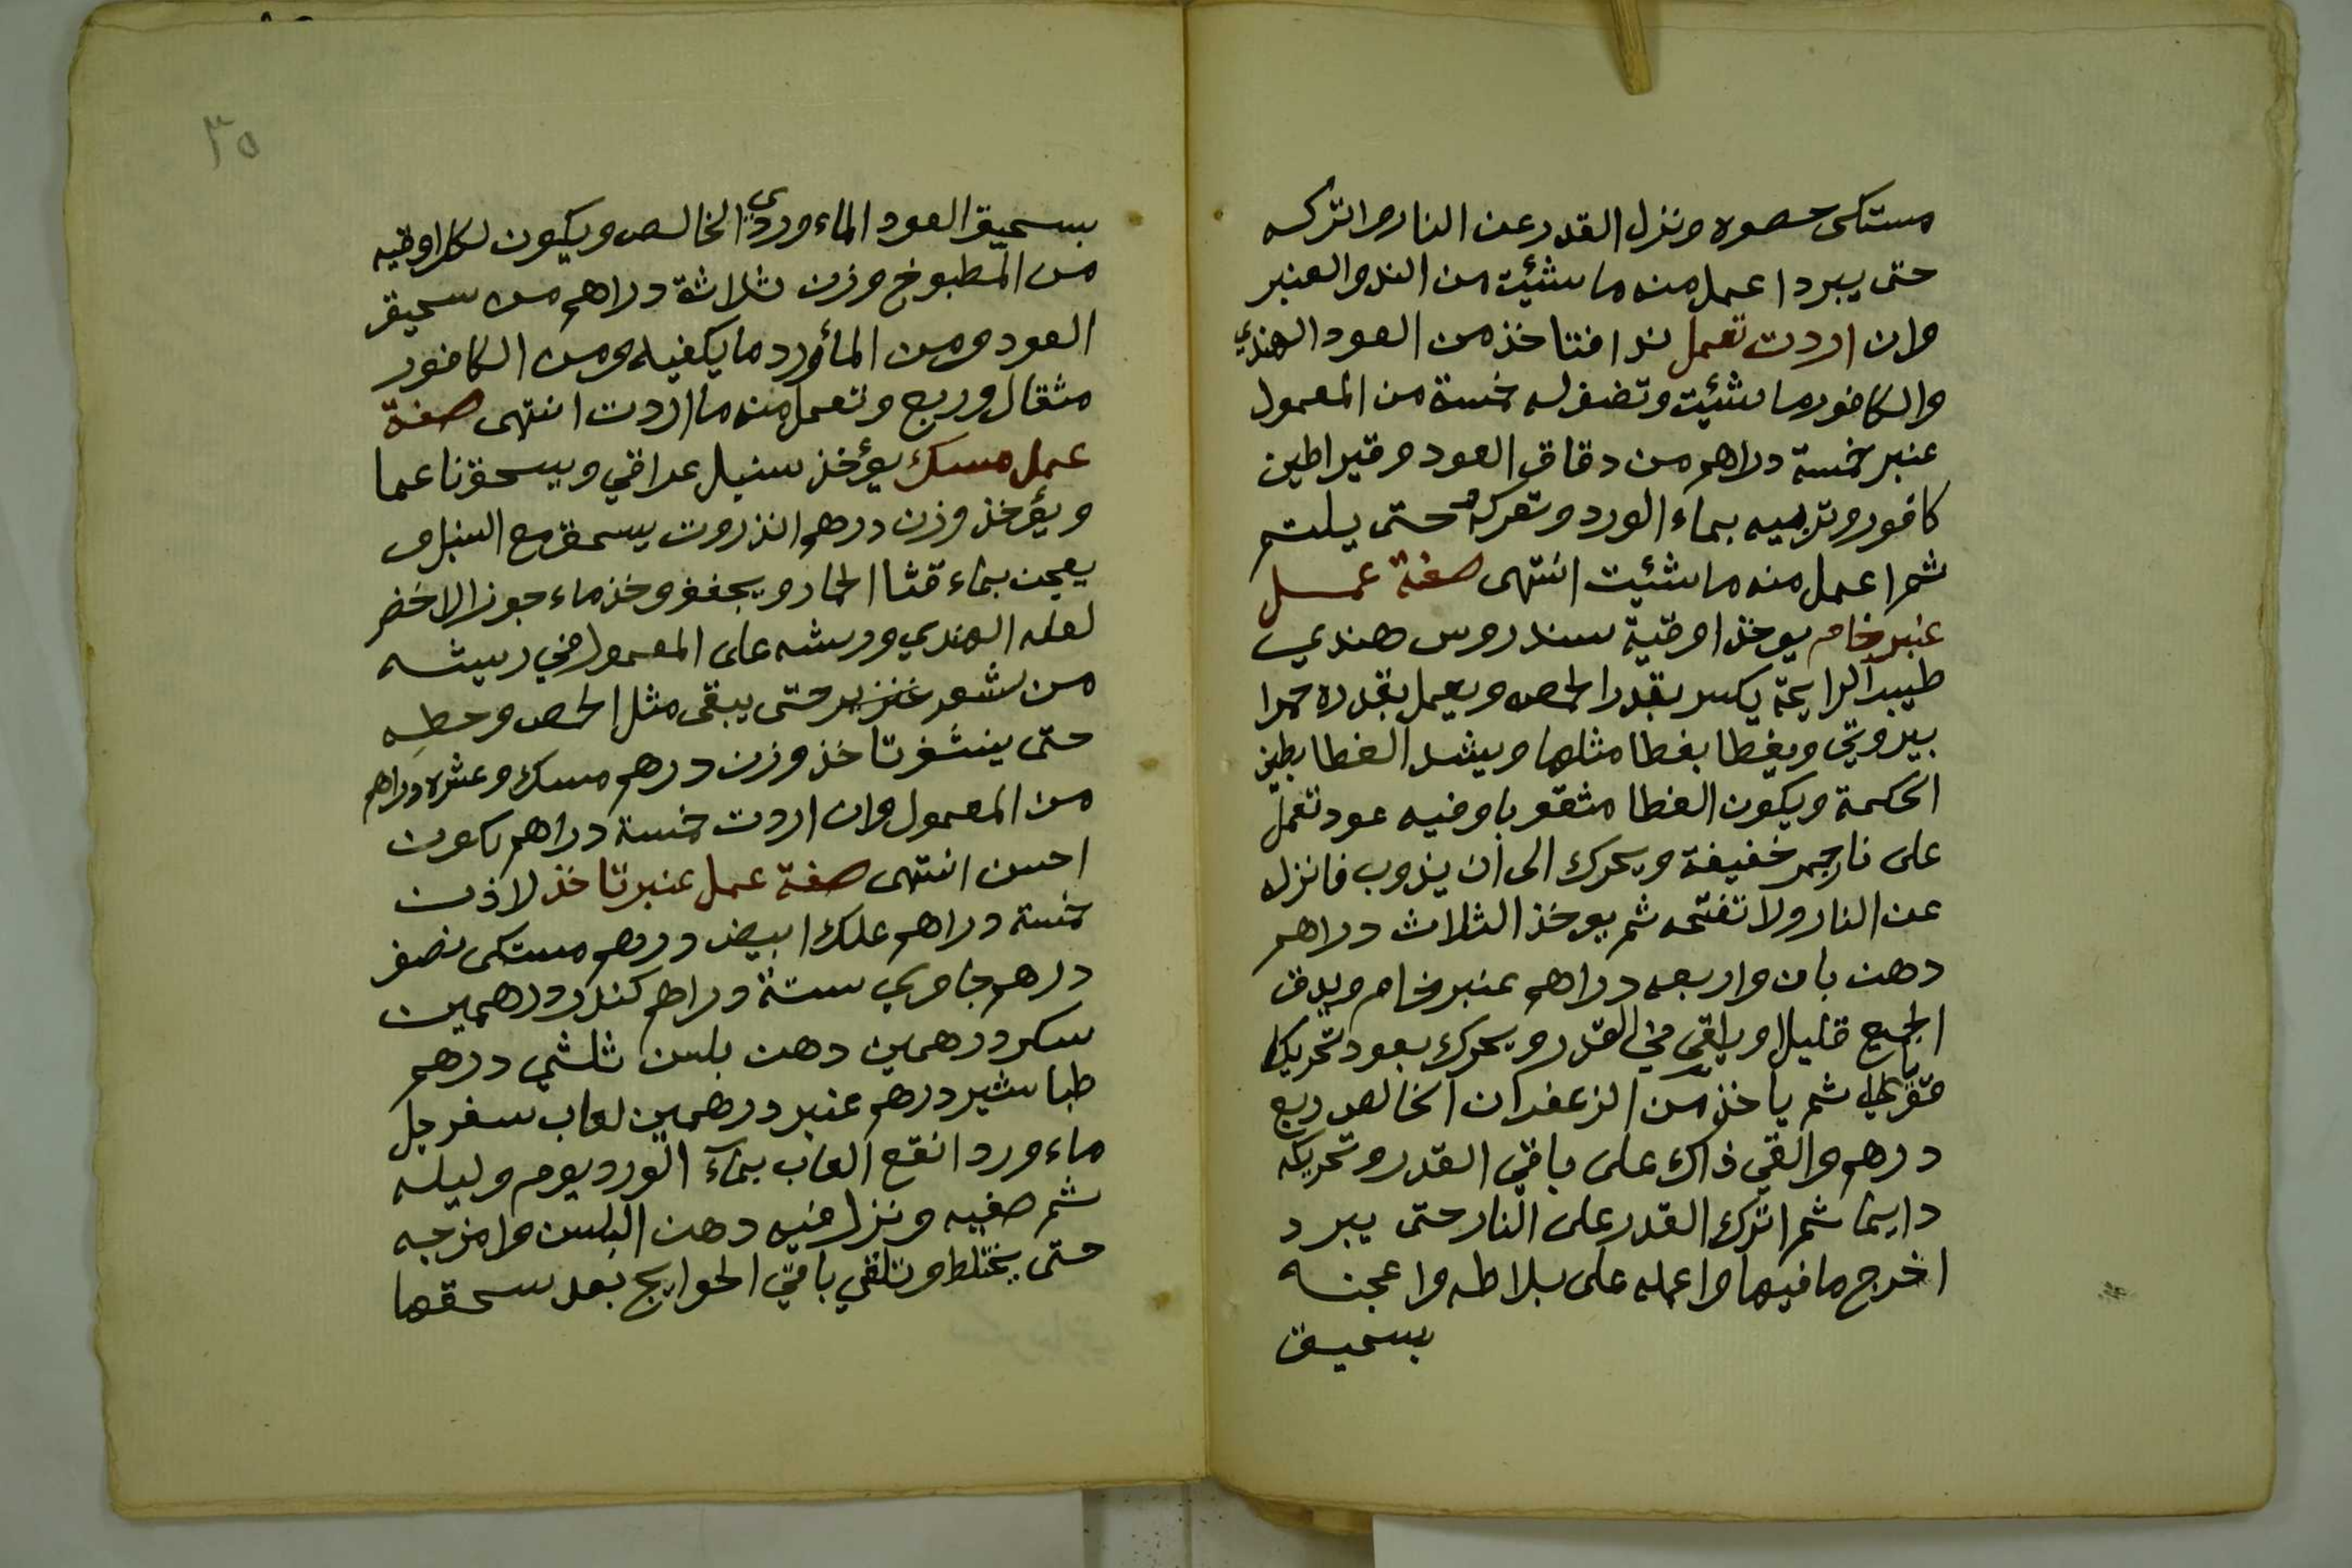 مستكى حصوه ونزل القدر عن النار واتركه
حتى يبرد اعمل منه ما شئيت من الند والعنبر
وان اردت تعمل ند افتاخذ من العود الهندي
والكافور ما شئيت وتضف له خمسة من المعمول
عنبر خمسة دراهم من دقاق العود وقيراطين
كافور وتربيه بماء الورد وتعركه حتى يلتم
ثم اعمل منه ما شئيت انتهى صفة عمل
عنبر خام يوخذ اوقية سندروس هندي
طيب الرايحة يكسر بقدر الحمص ويعمل بقدره حمرا
بيروتي ويغطا بغطا مثلها ويشد الغطا بطين
الحكمة ويكون الغطا مثقوبا وفيه عود تعمل
على نار جمر خفيفة ويحرك الى ان يذوب فانزله
عن النار ولا تفتحه ثم يوخذ الثلاث دراهم
دهن بان واربعه دراهم عنبر خام ويدق
الجميع قليلا ويلقي في القدر ويحرك بعود تحريكا
قوي ثم ياخذ من الزعفران الخالص ربع
درهم والقي ذاك على باقي القدر وتحريكه
دايما ثم اترك القدر على النار حتى يبرد
اخرج ما فيها واعمله على بلاطه واعجنه
بسحيق
٣٥
بسحيق العود الماء وردي الخالص ويكون لكل اوقيه
من المطبوخ وزن ثلاثة دراهم من سحيق
العود ومن المأورد ما يكفيه ومن الكافور
مثقال وربع وتعمل منه ما اردت انتهى صفة
عمل مسك يؤخذ سنبل عراقي ويسحق ناعما
ويؤخذ وزن درهم انزروت يسحق مع السنبل و
يعجن بماء قثا الحمار ويجفف وخذ ماء جوز الاخضر
لعله الهندي ورشه على المعمول في ريشه
من شعر عنزير حتى يبقى مثل الحمص وحطه
حتى ينشف تاخذ وزن درهم مسك وعشره دراهم
من المعمول وان اردت خمسة دراهم يكون
احسن انتهى صفة عمل عنبر تاخذ لاذن
خمسة دراهم علك ابيض درهم مستكى نصف
درهم جاوي ستة دراهم كندر درهمين
سكر درهمين دهن بلسن ثلثي درهم
طباشير درهم عنبر درهمين لعاب سفرجل
ماء ورد انقع العاب بماء الورد يوم وليله
ثم صفيه ونزل فيه دهن البلسن وامزجه
حتى يختلط وتلقي باقي الحوايج بعد سحقها